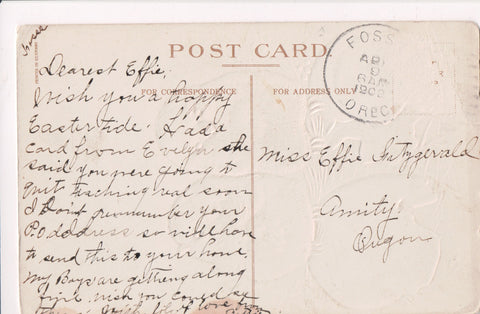 POST CARD
FOR CORRESPONDENCE
FOR ADDRESS ONLY
FOSS
AP
9
6AM
OREG
Dearest Effie,
Wish you a happy
Eastertide. Had a
card from Evelyn she
said you were going to
quit teaching real soon
I don't remember your
P.O. address so will have
to send this to your home.
My Boys are getting along
fine wish you could see
love from
Miss Effie Fitzgerald
Amity
Oregon